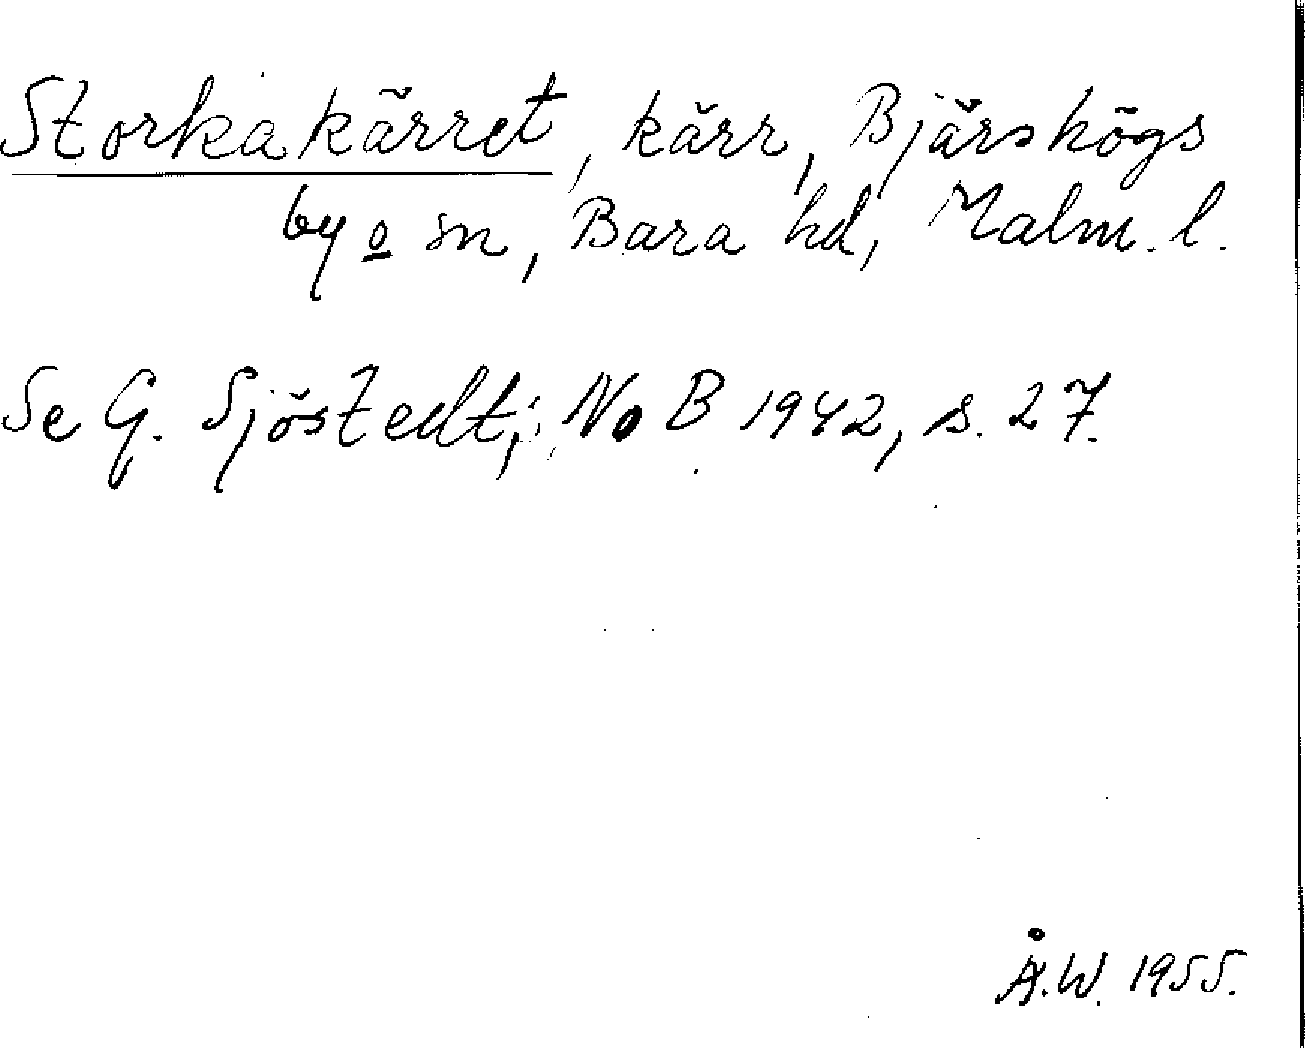 Storkakärret, kärr, Bjärshögs
by o sn, Bara hd, Malm. l.
Se G. Sjöstedt; No B 1942, s. 27.
Å.W. 1955.